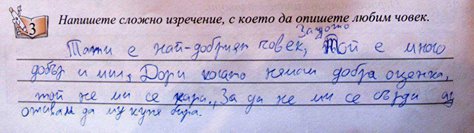 3 Напишете сложно изречение, с което да опишете любим човек.
Защото
Тати е най-добрият човек, Той е много
добър и мил, Дори когато нямам добра оценка,
той не ми се кара., За да не ми се сърди аз
отивам да му купя бира.